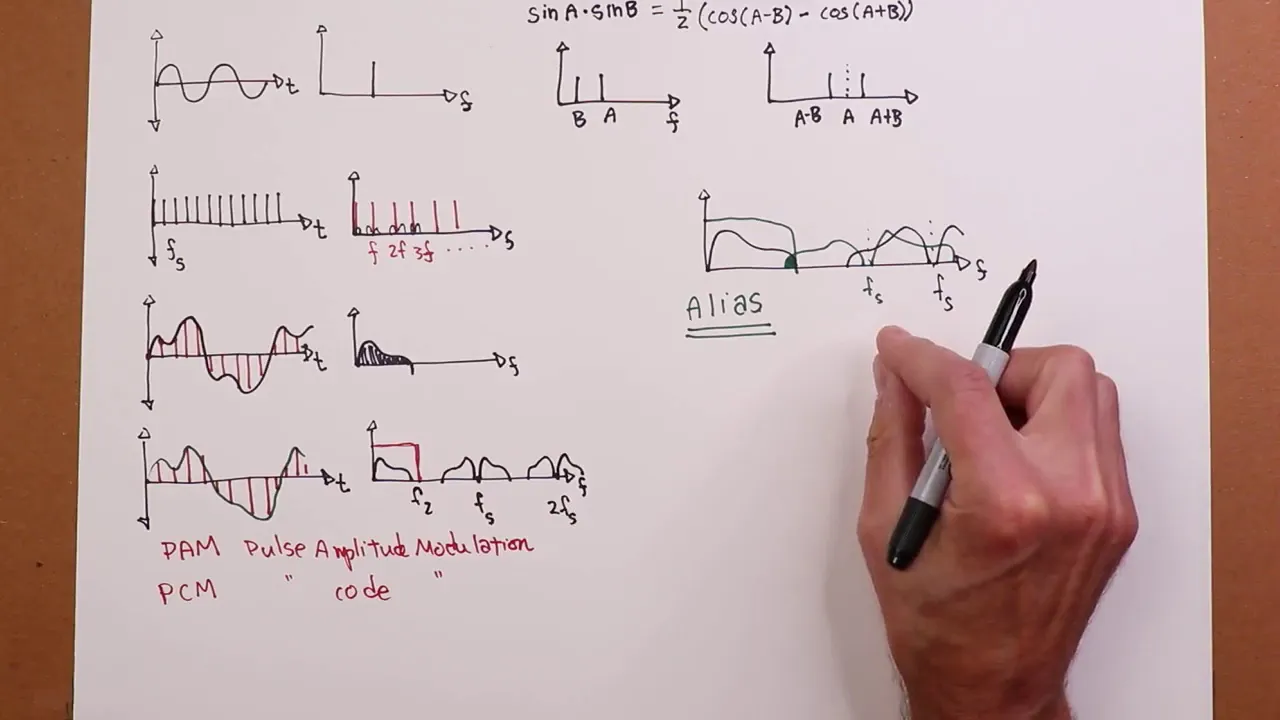 sinA·sinB = 1/2 (cos(A-B) - cos(A+B))
t
f
B A f
A-B A A+B
fs t
f 2f 3f ..... f
fs fs f
Alias
t
f
t
f2 fs 2fs f
PAM Pulse Amplitude Modulation
PCM " code "